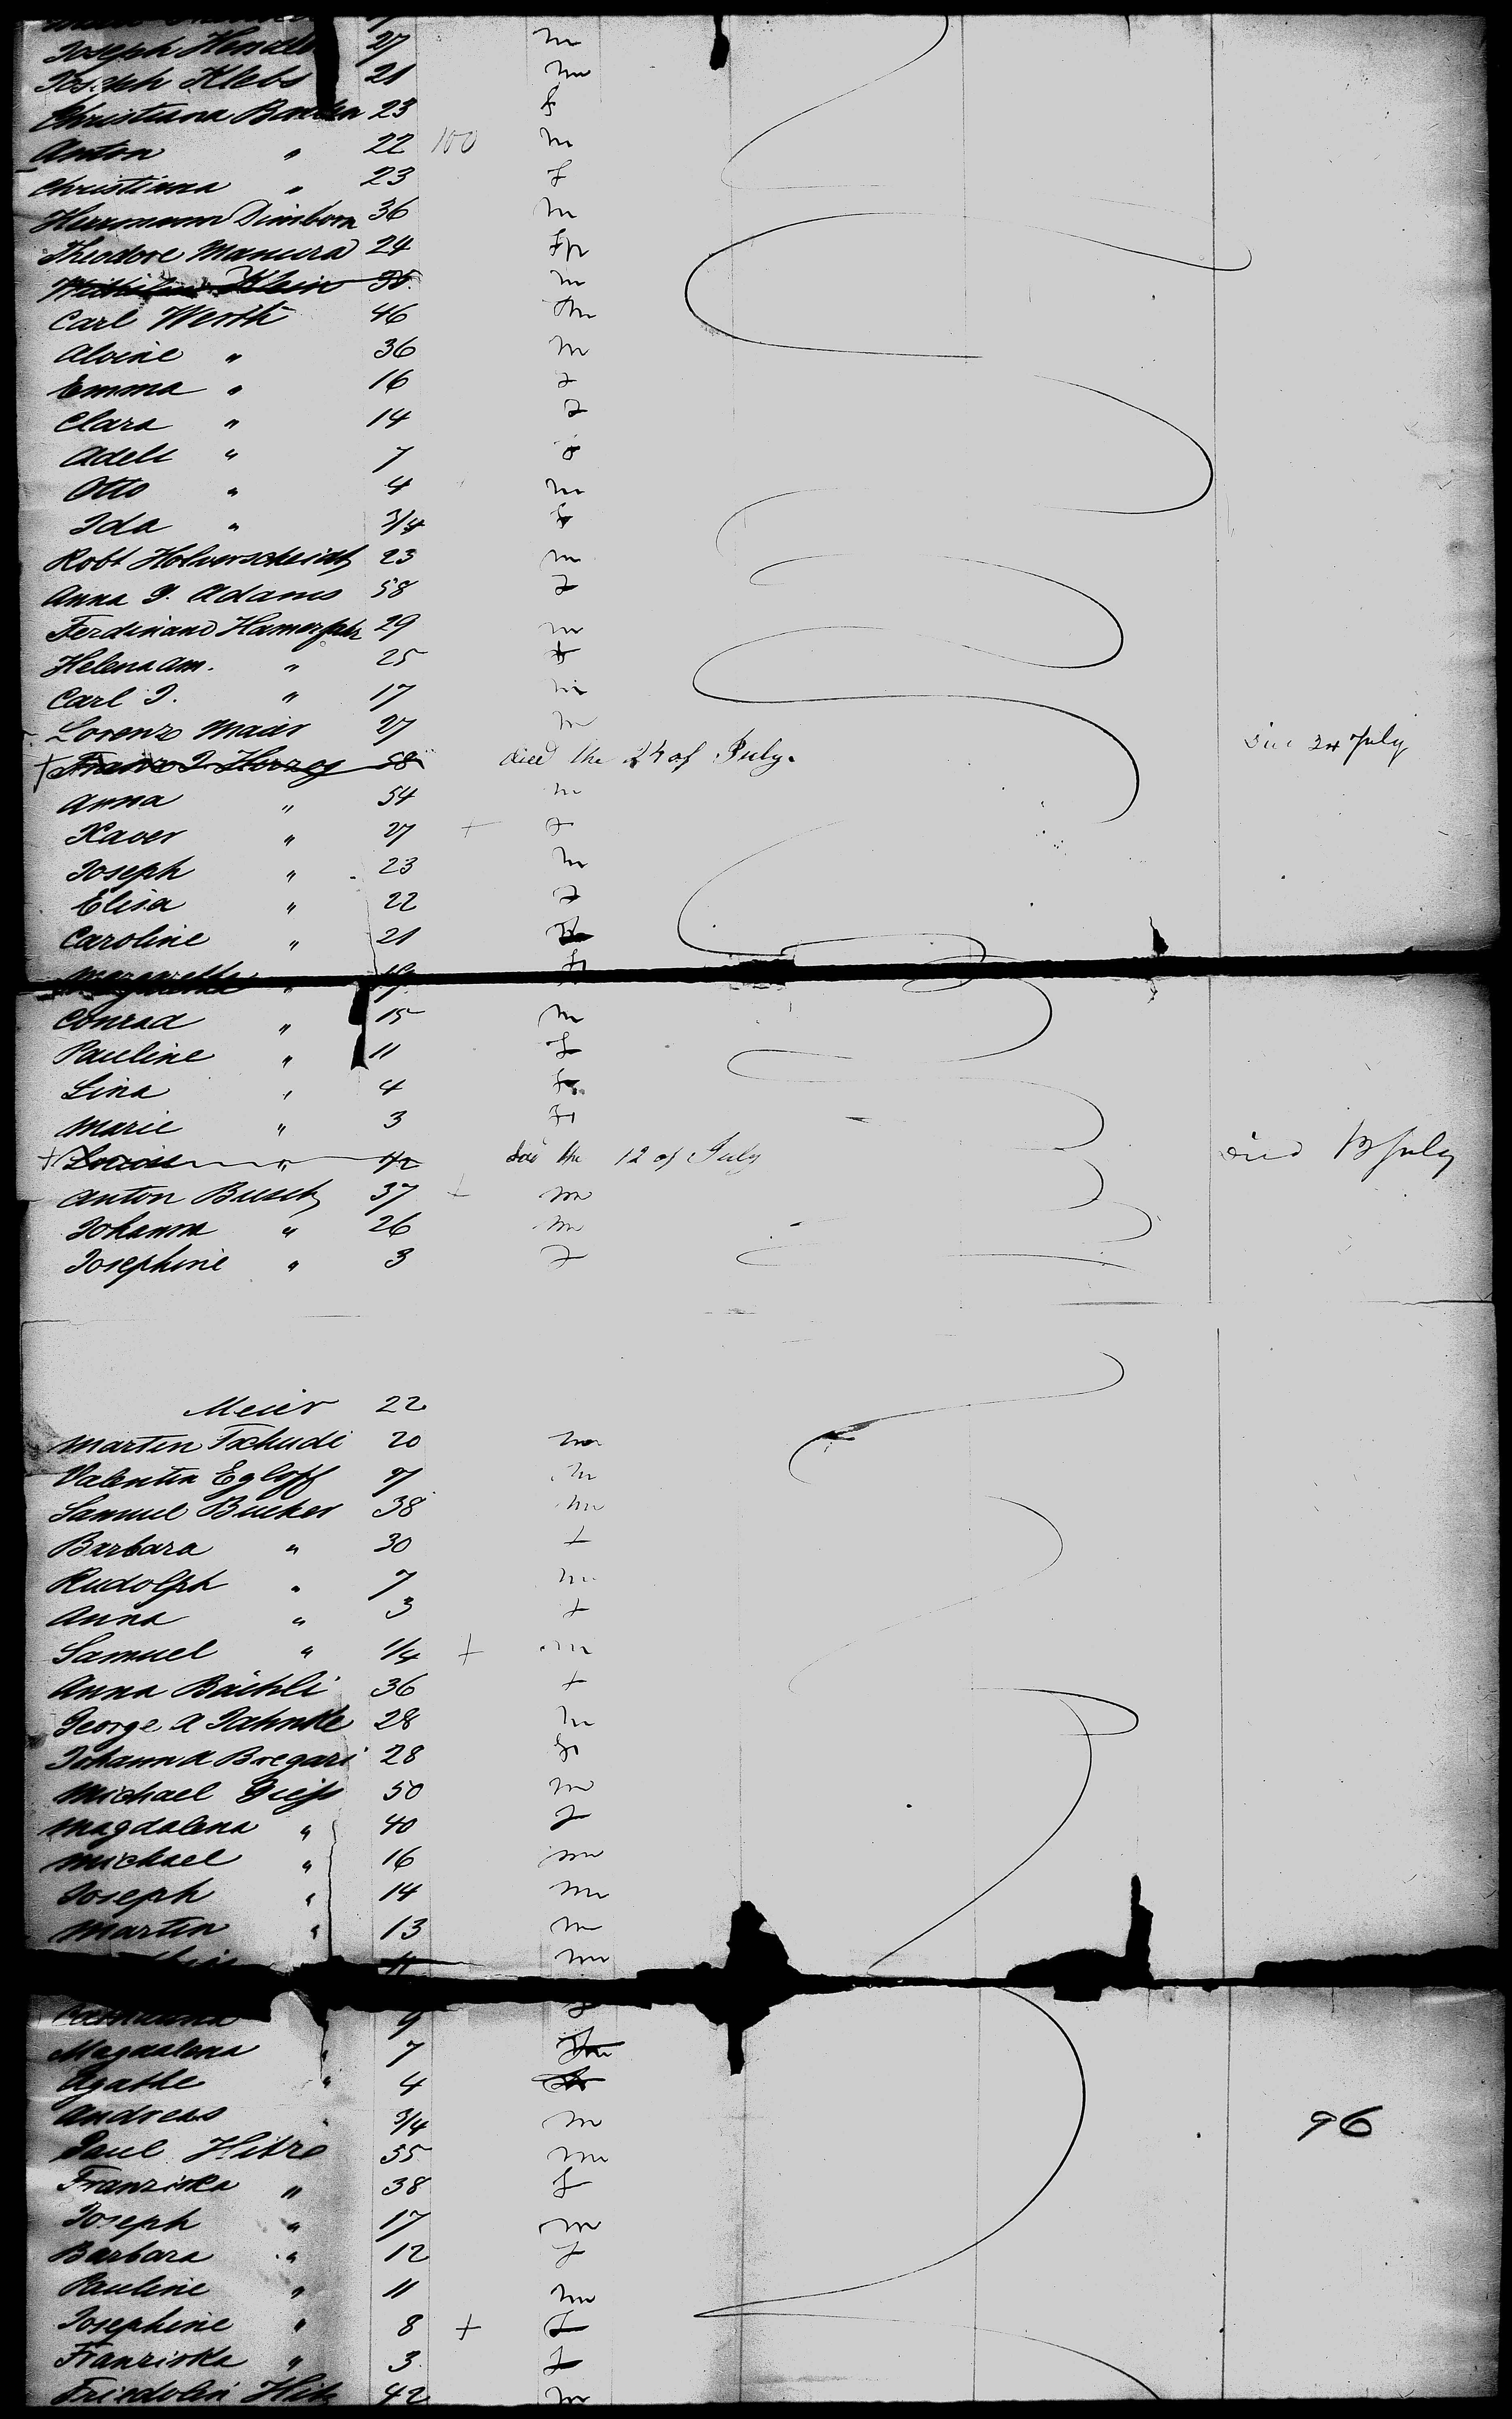 Joseph 27 m
Joseph Klebs 21 m
Christiana 23 f
Anton " 22 100 m
Christiana " 23 f
Herrmann Dimborn 36 m
Theodore Manura 24
Klein m
Carl Werth 46 m
Alvine " 36 m
Emma " 16 f
Clara " 14 f
Adele " 7 f
Otto " 4 m
Ida " 3/4 f
Robt Holverscheidt 23 m
Anna G. Adams 58 f
Ferdinand 29 m
Helena am. " 25 f
Carl J. " 17 m
Lorenz Maier 27 m
+ Franz J. Herzog 58 died the 24 of July. 24 July
Anna " 54 m
Xaver " 27 + f
Joseph " 23 m
Elisa " 22 f
Caroline " 21
Margarethe " 19 f
Conrad " 15 m
Pauline " 11 f
Lina " 4 f
Marie " 3 f
+ " the 12 of July died July
Anton Busch 37 + m
Johanna " 26 m
Josephine " 3 f
Meier 22
Martin Tschudi 20 m
Valentin Egloff m
Samuel Bucher 38 m
Barbara " 30 f
Rudolph " 7 m
Anna " 3 f
Samuel " 1/4 + m
Anna Bächli 36 f
George A Jahnke 28 m
Johann A Bregari 28
Michael 50 m
Magdalena " 40 f
Michael " 16 m
Joseph " 14 m
Martin " 13 m
11 m
9 f
Magdalena " 7
Agathe " 4
Andreas " 3/4 m
96
Paul Hitze 55 m
Franziska " 38 f
Joseph " 17 m
Barbara " 12 f
Pauline " 11 m
Josephine " 8 + f
Franziska " 3 f
Fridolin 42 m